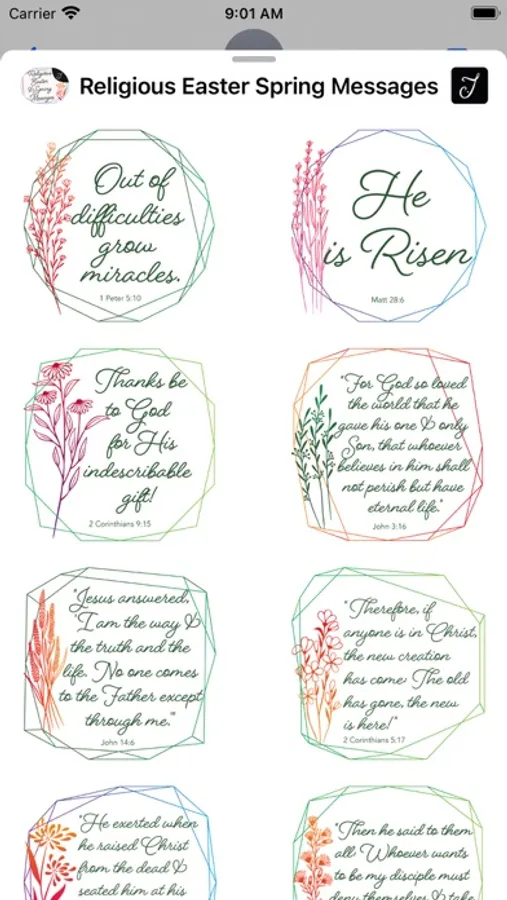 Carrier 9:01 AM
Religious Easter Spring Messages
Out of
difficulties
grow
miracles.
1 Peter 5:10
He
is Risen
Matt 28:6
Thanks be
to God
for His
indescribable
gift!
2 Corinthians 9:15
"For God so loved
the world that he
gave his one & only
Son, that whoever
believes in him shall
not perish but have
eternal life."
John 3:16
"Jesus answered,
"I am the way &
the truth and the
life. No one comes
to the Father except
through me.""
John 14:6
"Therefore, if
anyone is in Christ,
the new creation
has come: The old
has gone, the new
is here!"
2 Corinthians 5:17
"He exerted when
he raised Christ
from the dead &
seated him at his
"Then he said to them
all: Whoever wants
to be my disciple must
deny themselves & take